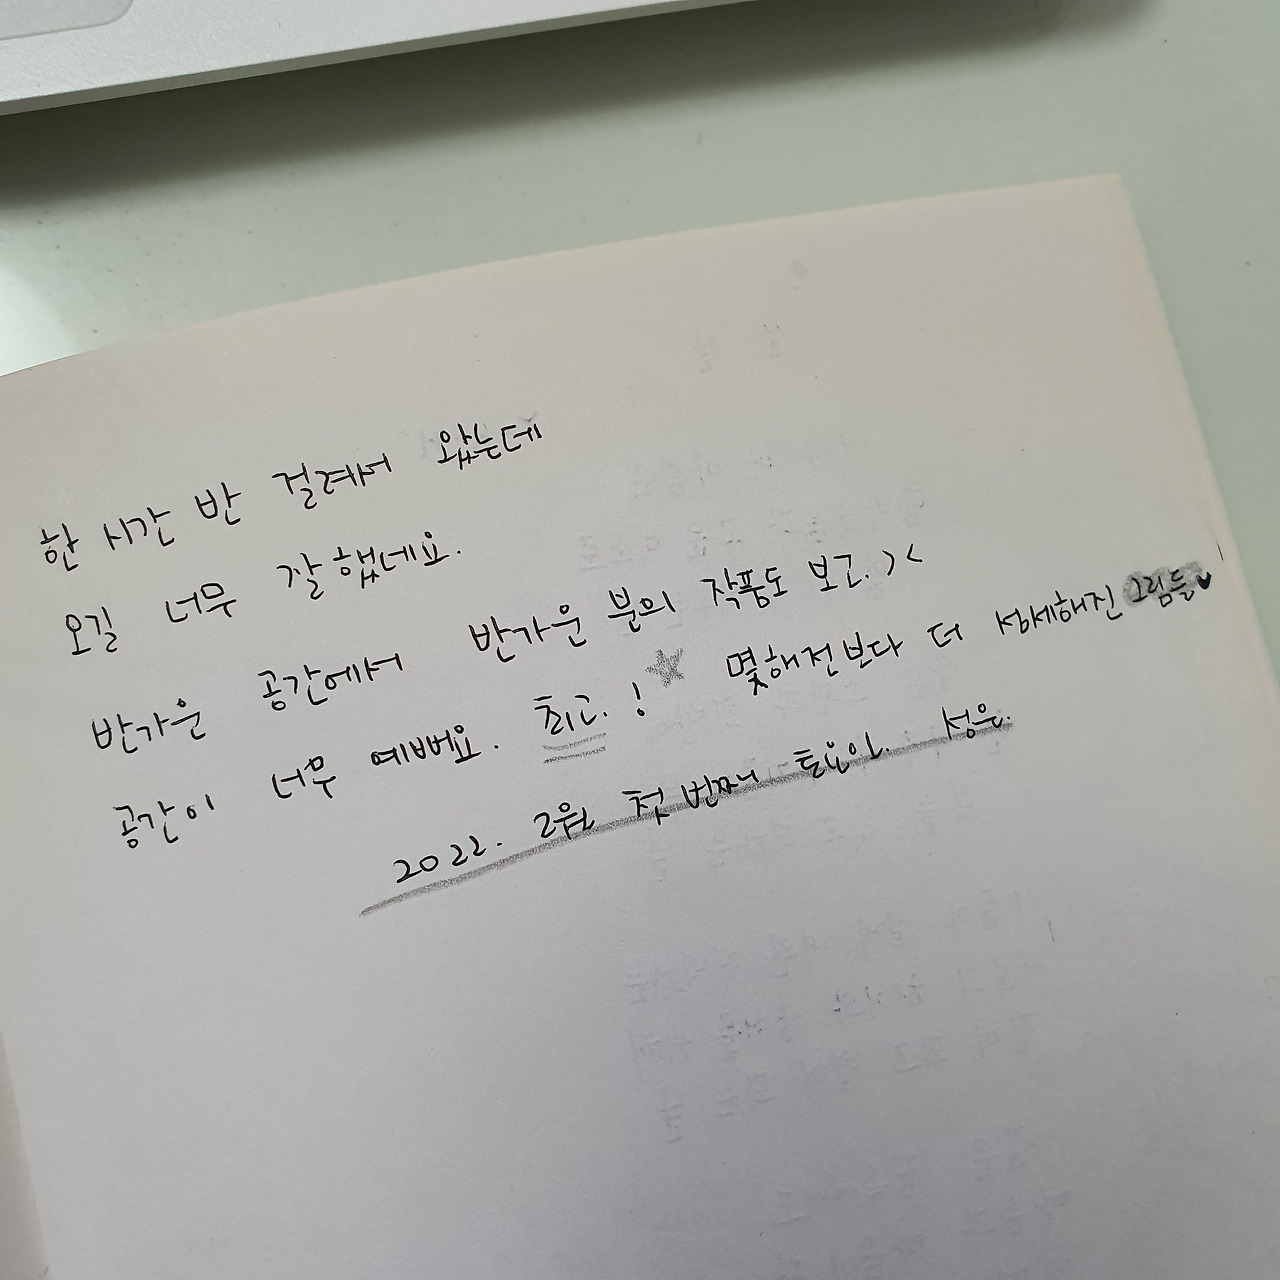 한 시간 반 걸려서 왔는데
오길 너무 잘했네요.
반가운 공간에서 반가운 분의 작품도 보고. ><
공간이 너무 예뻐요. 최고.! ★ 몇해전보다 더 섬세해진 그림들♥
2022. 2월 첫 번째 토요일. 성은.